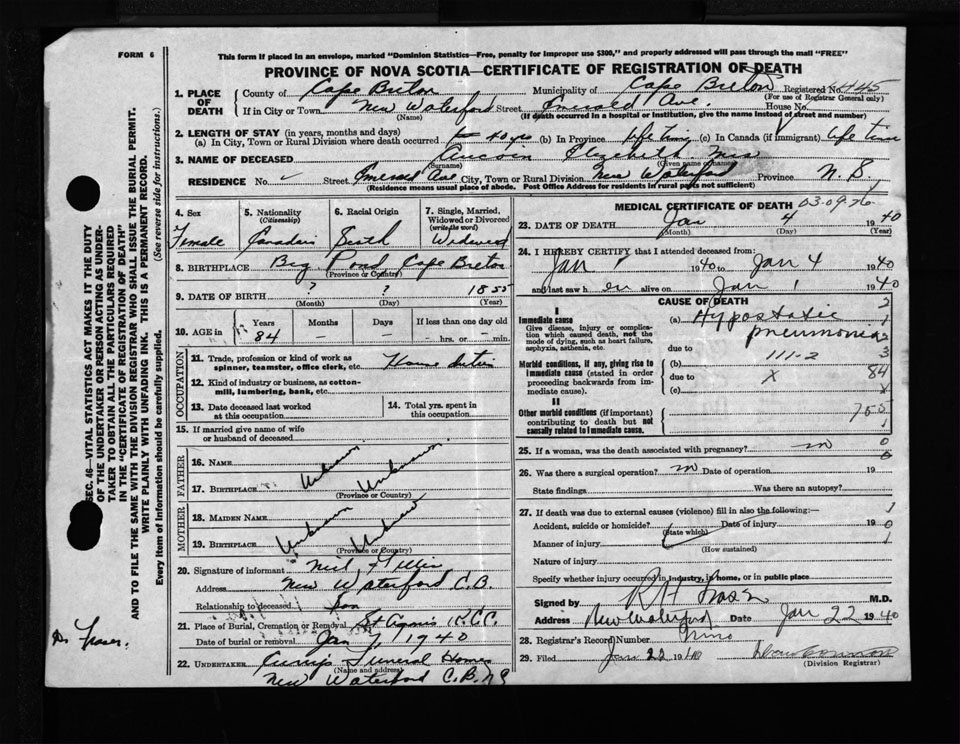 FORM 6
This form if placed in an envelope, marked "Dominion Statistics—Free, penalty for improper use $300," and properly addressed will pass through the mail "FREE"
PROVINCE OF NOVA SCOTIA—CERTIFICATE OF REGISTRATION OF DEATH
1. PLACE OF DEATH
County of Cape Breton Municipality of Cape Breton Registered No. 445
(For use of Registrar General only)
If in City or Town New Waterford Street Emerald Ave. House No.
(Name) (If death occurred in a hospital or institution, give the name instead of street and number)
2. LENGTH OF STAY (in years, months and days)
(a) In City, Town or Rural Division where death occurred 40 yrs (b) In Province life time (c) In Canada (if immigrant) life time
3. NAME OF DECEASED Aucoin Elizabeth Mrs
(Surname) (Given name)
RESIDENCE No. Street Emerald Ave City, Town or Rural Division New Waterford Province N.S.
(Residence means usual place of abode. Post Office Address for residents in rural parts not sufficient)
4. Sex
Female
5. Nationality
(Citizenship)
Canadian
6. Racial Origin
7. Single, Married, Widowed or Divorced
(write the word)
Widowed
8. BIRTHPLACE Big Pond Cape Breton
(Province or Country)
9. DATE OF BIRTH ? ? 1855
(Month) (Day) (Year)
10. AGE in
Years Months Days If less than one day old
84 hrs. or min.
OCCUPATION
11. Trade, profession or kind of work as spinner, teamster, office clerk, etc.
12. Kind of industry or business, as cotton-mill, lumbering, bank, etc.
13. Date deceased last worked at this occupation
14. Total yrs. spent in this occupation
15. If married give name of wife or husband of deceased
FATHER
16. NAME Unknown
17. BIRTHPLACE Unknown
(Province or Country)
MOTHER
18. MAIDEN NAME Unknown
19. BIRTHPLACE Unknown
(Province or Country)
20. Signature of informant Neil Gillis
Address New Waterford C.B.
Relationship to deceased Son
21. Place of Burial, Cremation or Removal St Agnes R.C.C.
Date of burial or removal Jan 7 1940
22. UNDERTAKER Curry's Funeral Home
(Name and address)
New Waterford C.B. N S
MEDICAL CERTIFICATE OF DEATH 03-09-26
23. DATE OF DEATH Jan 4 1940
(Month) (Day) (Year)
24. I HEREBY CERTIFY that I attended deceased from:
Jan 1 1940 to Jan 4 1940
and last saw her alive on Jan 1 1940
CAUSE OF DEATH
I
Immediate cause
Give disease, injury or complication which caused death, not the mode of dying, such as heart failure, asphyxia, asthenia, etc.
(a) Hypostatic pneumonia
due to
Morbid conditions, if any, giving rise to immediate cause (stated in order proceeding backwards from immediate cause).
(b) 111-2
due to X 84
(c)
II
Other morbid conditions (if important) contributing to death but not causally related to immediate cause.
25. If a woman, was the death associated with pregnancy? no
26. Was there a surgical operation? no Date of operation 19
State findings Was there an autopsy?
27. If death was due to external causes (violence) fill in also the following:—
Accident, suicide or homicide? Date of injury 19
(State which)
Manner of injury
(How sustained)
Nature of injury
Specify whether injury occurred in industry, in home, or in public place
Signed by M.D.
Address New Waterford Date Jan 22 1940
28. Registrar's Record Number Nine
29. Filed Jan 22 1940
(Division Registrar)
SEC. 46—VITAL STATISTICS ACT MAKES IT THE DUTY
OF THE UNDERTAKER OR PERSON ACTING AS UNDERTAKER TO OBTAIN ALL THE PARTICULARS REQUIRED
IN THE "CERTIFICATE OF REGISTRATION OF DEATH"
AND TO FILE THE SAME WITH THE DIVISION REGISTRAR WHO SHALL ISSUE THE BURIAL PERMIT.
WRITE PLAINLY WITH UNFADING INK. THIS IS A PERMANENT RECORD.
Every item of Information should be carefully supplied. (See reverse side for instructions.)
Dr Fraser.